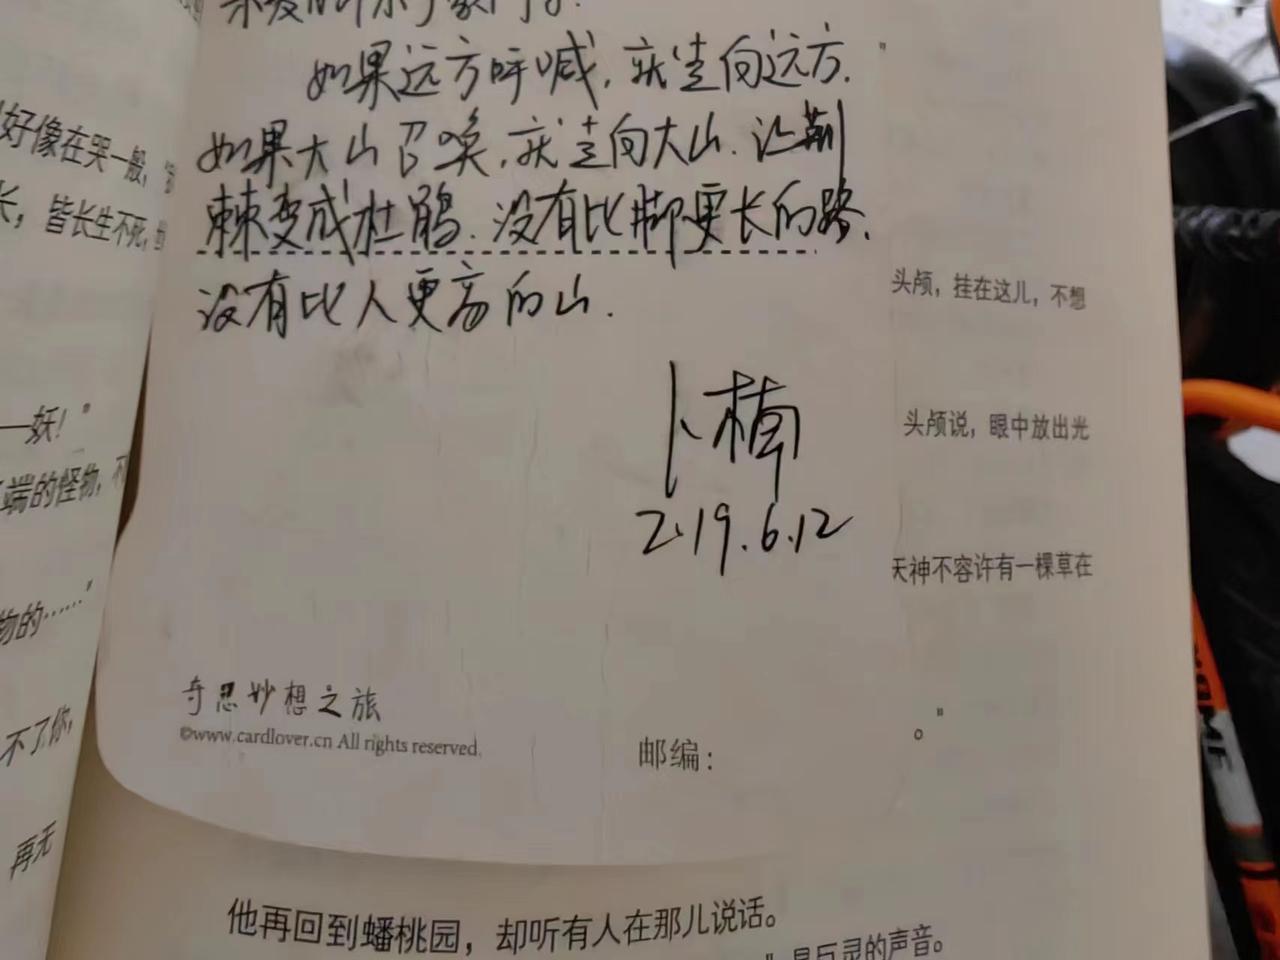 如果远方呼喊，就走向远方．
如果大山召唤，就走向大山．让荆
棘变成杜鹃．没有比脚更长的路．
没有比人更高的山．
卜楠
2.19.6.12
奇思妙想之旅
©www.cardlover.cn All rights reserved.
邮编：
好像在哭一般，
长，皆长生不死，
—妖！”
端的怪物，不
物的……”
不了你，
再无
头颅，挂在这儿，不想
头颅说，眼中放出光
天神不容许有一棵草在
他再回到蟠桃园，却听有人在那儿说话。
是巨灵的声音。